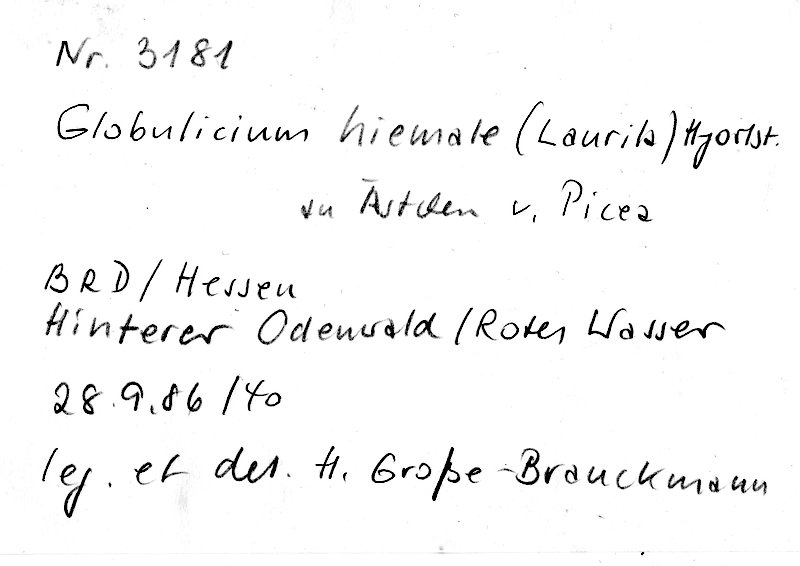 Nr. 3181
Globulicium hiemale (Laurila) Hjortst.
an Ästchen v. Picea
BRD / Hessen
Hinterer Odenwald / Rotes Wasser
28.9.86 / 40
leg. et det. H. Große-Brauckmann